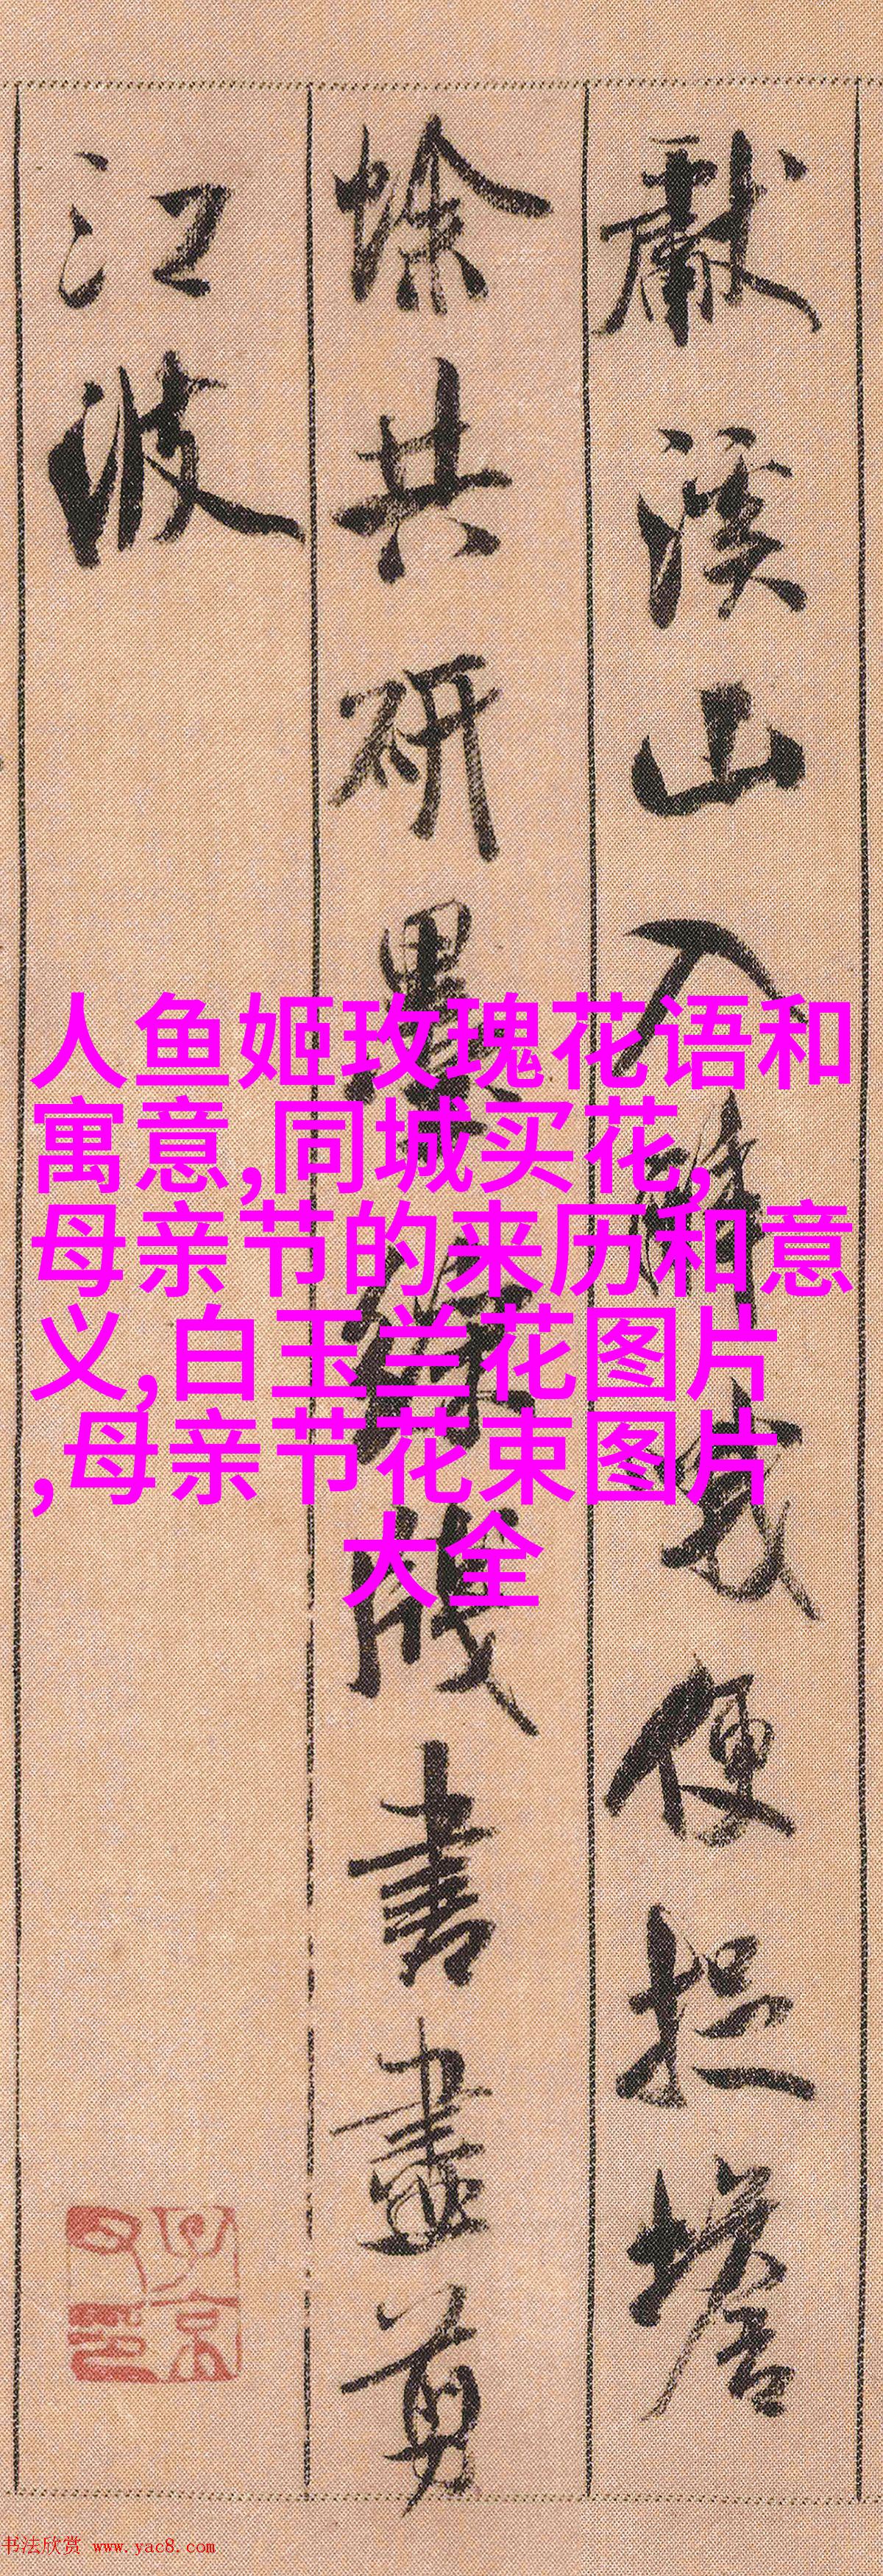 獻溪山入醉哦便捉蟾
蜍共研墨綵牋書盡剪
江波
人鱼姬玫瑰花语和
寓意,同城买花,
母亲节的来历和意
义,白玉兰花图片
,母亲节花束图片
大全
书法欣赏 www.yac8.com